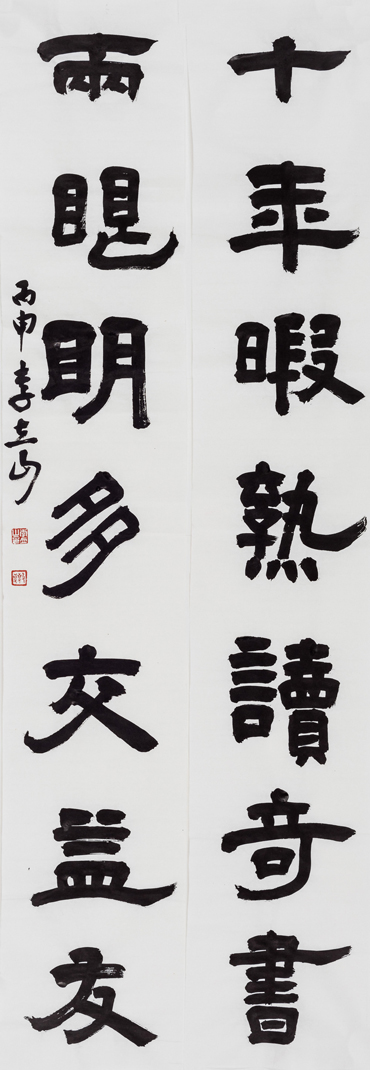 十年暇熟讀奇書
兩眼明多交益友
丙申李立山